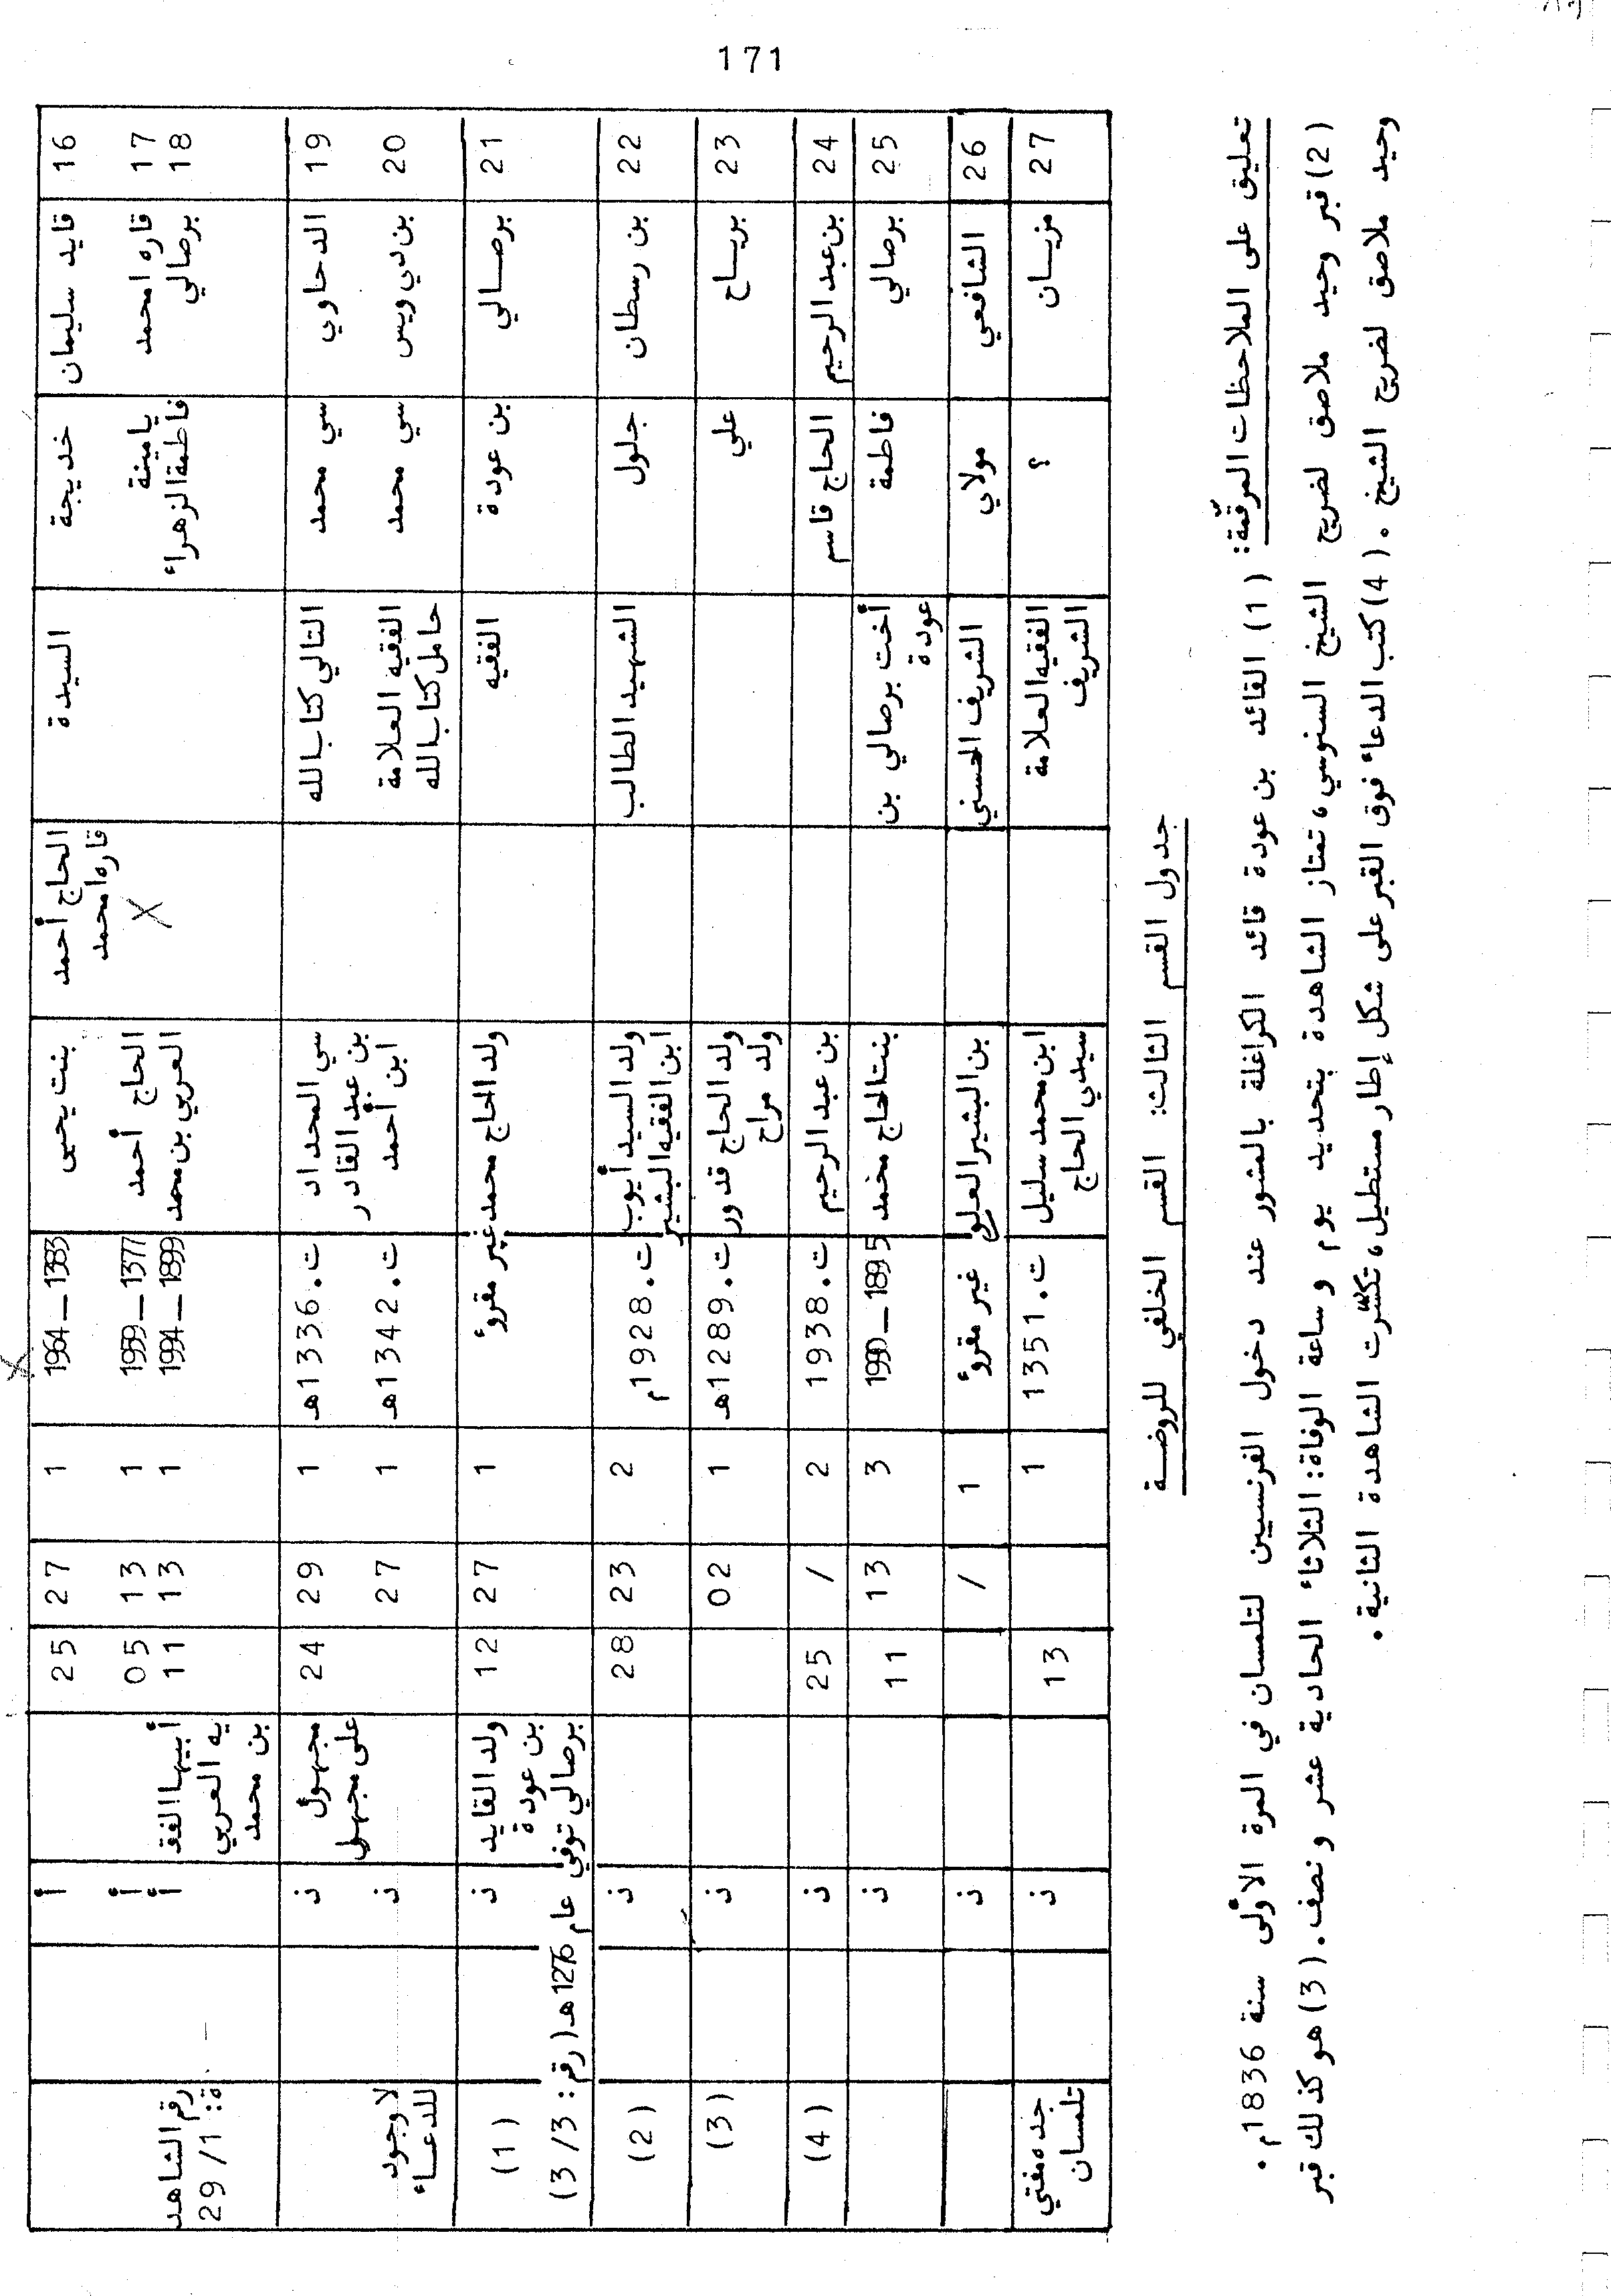 171
16 قايد سليمان خديجة السيدة الحاج أحمد قاره امحمد بنت يحيى 1383 — 1964 1 27 25 أ
17 قاره امحمد يامينة الحاج أحمد 1377 — 1959 1 13 05 أ
18 برصالي فاطمة الزهراء العربي بن محمد 1899 — 1994 1 13 11 أبيها الفقيه العربي بن محمد أ رقم الشاهدة: 29/1
19 الدحاوي سي محمد التالي كتاب الله سي المحداد بن عبد القادر ت. 1336هـ 1 29 24 مجهول على مجهول ذ
20 بن دي ويس سي محمد الفقيه العلامة حامل كتاب الله ابن أحمد ت. 1342هـ 1 27 ذ لا وجود للدعاء
21 برصالي بن عودة الفقيه ولد الحاج محمد غير مقروء 1 27 12 ولد القايد بن عودة برصالي توفي عام 1276هـ (رقم: 3/3) ذ (1)
22 بن رسطان جلول الشهيد الطالب ولد السيد أيوب ابن الفقيه البشير ت. 1928م 2 23 28 ذ (2)
23 برياح علي ولد الحاج قدور ولد مراح ت. 1289هـ 1 02 ذ (3)
24 بن عبد الرحيم الحاج قاسم بن عبد الرحيم ت. 1938 2 / 25 ذ (4)
25 برصالي فاطمة أخت برصالي بن عودة بنت الحاج محمد 1895 — 1990 3 13 11 ذ
26 الشافعي مولاي الشريف الحسني بن البشير العلوي غير مقروء 1 / ذ
27 مزيان ؟ الفقيه العلامة الشريف ابن محمد سليل سيدي الحاج ت. 1351 1 13 ذ جده مفتي تلمسان
جدول القسم الثالث: القسم الخلفي للروضة
تعليق على الملاحظات المرقّمة: (1) القائد بن عودة قائد الكراغلة بالمشور عند دخول الفرنسيين لتلمسان في المرة الأولى سنة 1836م.
(2) قبر وحيد ملاصق لضريح الشيخ السنوسي، تمتاز الشاهدة بتحديد يوم وساعة الوفاة: الثلاثاء الحادية عشر ونصف. (3) هو كذلك قبر
وحيد ملاصق لضريح الشيخ. (4) كتب الدعاء فوق القبر على شكل إطار مستطيل، تكسّرت الشاهدة الثانية.